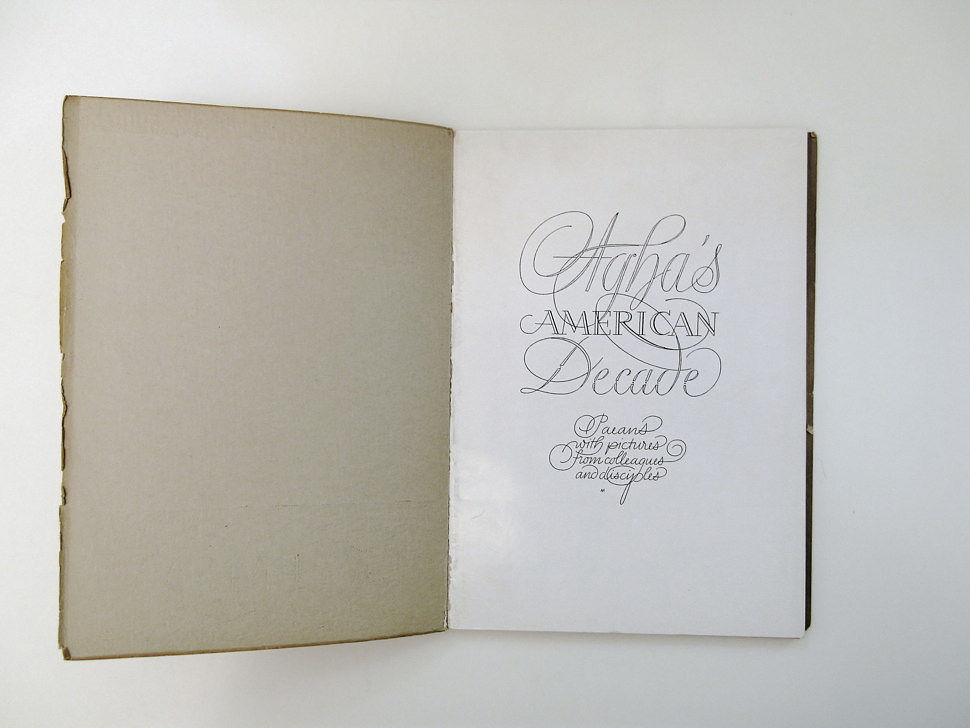 Agha's
AMERICAN
Decade
Paeans
with pictures
from colleagues
and disciples